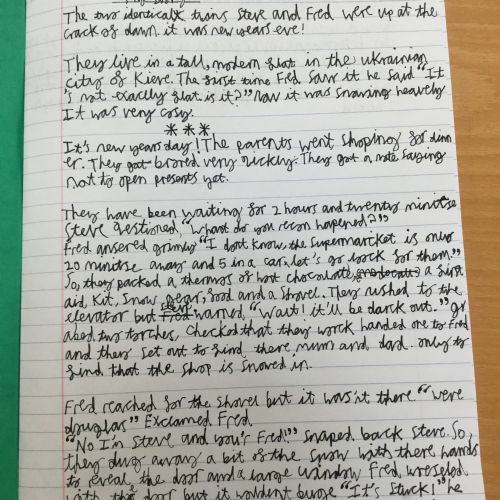 The two identicalt twins Steve and Fred were up at the
crack of dawn it was new years eve!
They live in a tall, modern flat in the ukrainian
city of Kieve. The furst time Fred saw it he said "It
's not exactly flat is it?" Now it was snowing heavely
It was very cosy.
***
It's new years day! The parents went shoping for dinn
er. They got brored very quickly. They got a note saying
not to open presents yet.
They have been waiting for 2 hours and twenty minitse
Steve qestioned "what do you recon hapened?"
Fred ansered grimly "I dont know, the supermarcket is only
20 minitse away and 5 in a car, let's go look for them."
So, they packed a thermos of hot chocolate, a first
aid, Kit, Snow gear, food and a shovel. They rushed to the
elevator but Steve warned "Wait! it'll be darck out." gr
abed two torches, Checked that they worck handed one to Fred
and they set out to find there mum and dad. only to
find that the shop is snowed in.
Fred reached for the shovel but it wasn't there "were
douglas" Exclamed Fred.
"No I'm Steve and you'r Fred!" snaped back Steve. So,
they dug away a bit of the snow with there hands
to reveal the door and a large window Fred, wreseled
with the door but it woldent buge "It's Stuck!" he